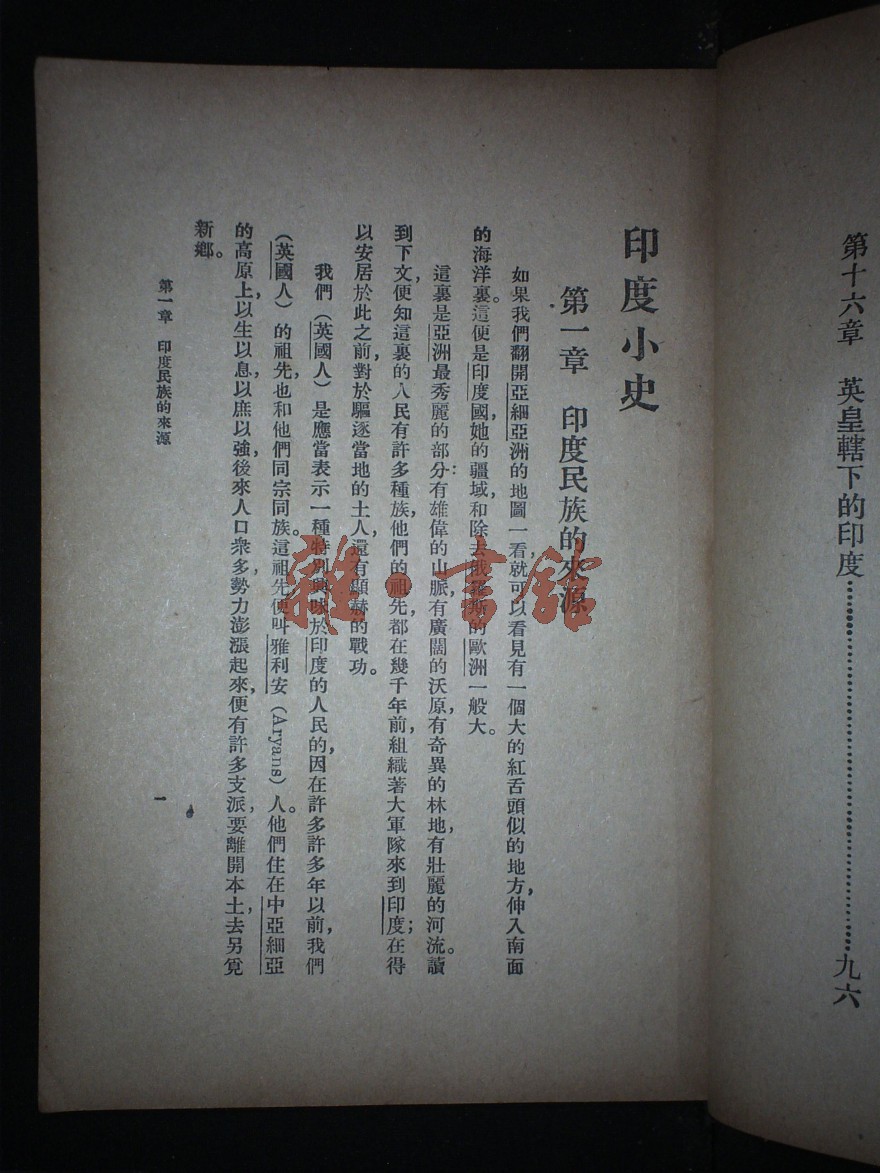 第十六章　英皇轄下的印度……………………九六
印度小史
第一章　印度民族的來源
如果我們翻開亞細亞洲的地圖一看，就可以看見有一個大的紅舌頭似的地方，伸入南面
的海洋裏。這便是印度國，她的疆域，和除去俄羅斯的歐洲一般大。
這裏是亞洲最秀麗的部分：有雄偉的山脈，有廣闊的沃原，有奇異的林地，有壯麗的河流。讀
到下文，便知這裏的人民有許多種族，他們的祖先，都在幾千年前，組織著大軍隊來到印度；在得
以安居於此之前，對於驅逐當地的土人，還有顯赫的戰功。
我們（英國人）是應當表示一種特別興味於印度的人民的，因在許多許多年以前，我們
（英國人）的祖先，也和他們同宗同族。這祖先便叫雅利安（Aryans）人。他們住在中亞細亞
的高原上，以生以息，以庶以強，後來人口衆多，勢力澎漲起來，便有許多支派，要離開本土，去另覓
新鄉。
第一章　印度民族的來源
一
雜·書館